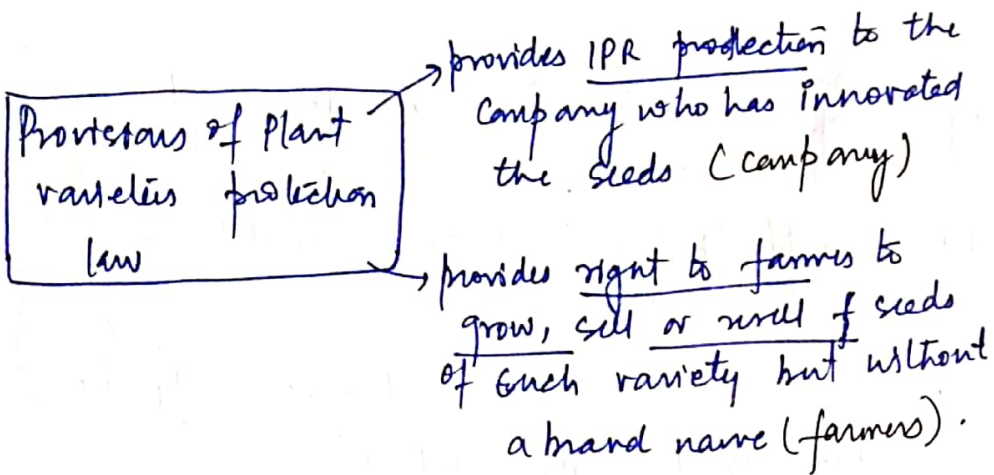 Provisions of Plant
varieties protection
law
provides IPR protection to the
company who has innovated
the seeds (company)
provides right to farmers to
grow, sell or resell of seeds
of such variety but without
a brand name (farmers).